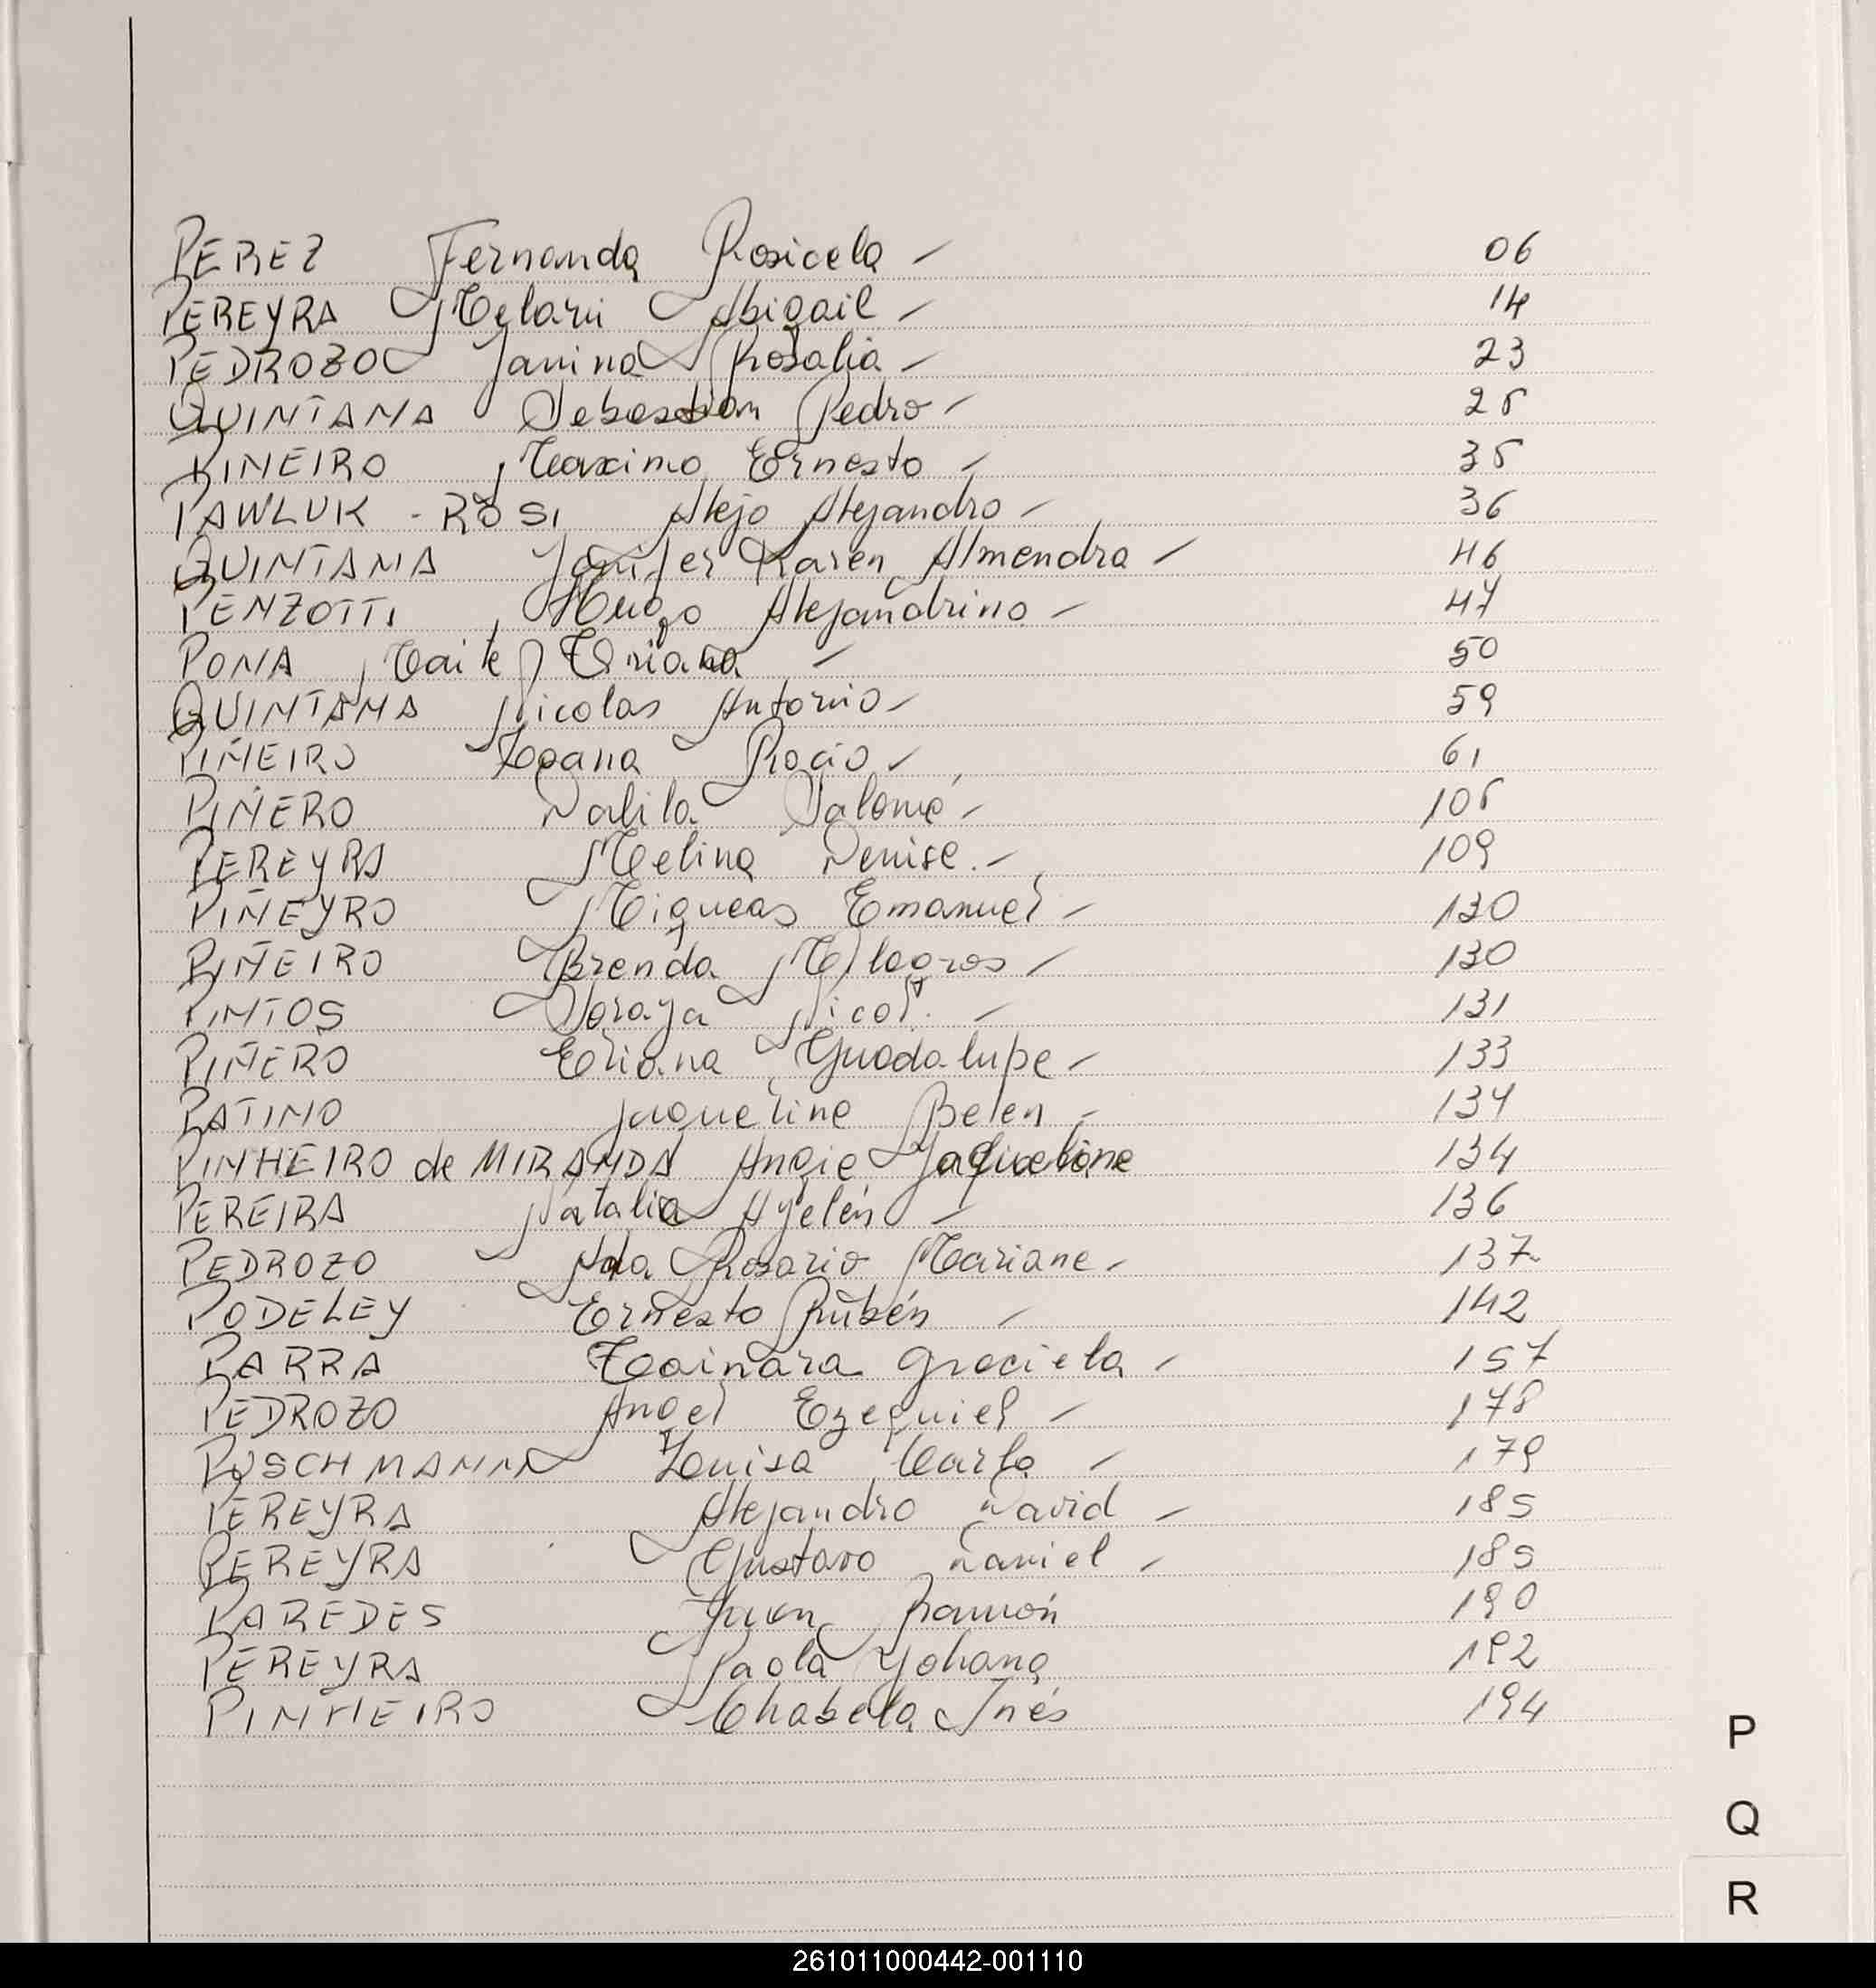 PEREZ Fernanda Rosicela - 06
PEREYRA Melani Abigail - 14
PEDROZO Janina Rosalia - 23
QUINTANA Sebastian Pedro - 25
PIÑEIRO Maximo Ernesto - 35
PAWLUK - ROSI Alejo Alejandro - 36
QUINTANA Karen Almendra - 46
PENZOTTI Hugo Alejandrino - 47
PONA Maite - 50
QUINTANA Nicolas Antonio - 59
PIÑEIRO Loana Rocio - 61
PIÑERO Dalila Salomé - 105
PEREYRA Melina Denise. - 109
PIÑEYRO Miqueas Emanuel - 130
PIÑEIRO Brenda Milagros - 130
PINTOS Soraya Nicol. - 131
PIÑERO Eliana Guadalupe - 133
PATIÑO Jaqueline Belen - 134
PINHEIRO de MIRANDA Angie Jaqueline 134
PEREIRA Natalia Ayelén - 136
PEDROZO Ada Rosario Mariane - 137
PODELEY Ernesto Rubén - 142
PARRA Tainara Graciela - 157
PEDROZO Angel Ezequiel - 178
PUSCHMANN Luisa Carla - 179
PEREYRA Alejandro David - 185
PEREYRA Gustavo Daniel - 185
PAREDES Juan Ramón 190
PEREYRA Paola Yohana 192
PINHEIRO Chabela Inés 194
P
Q
R
261011000442-001110